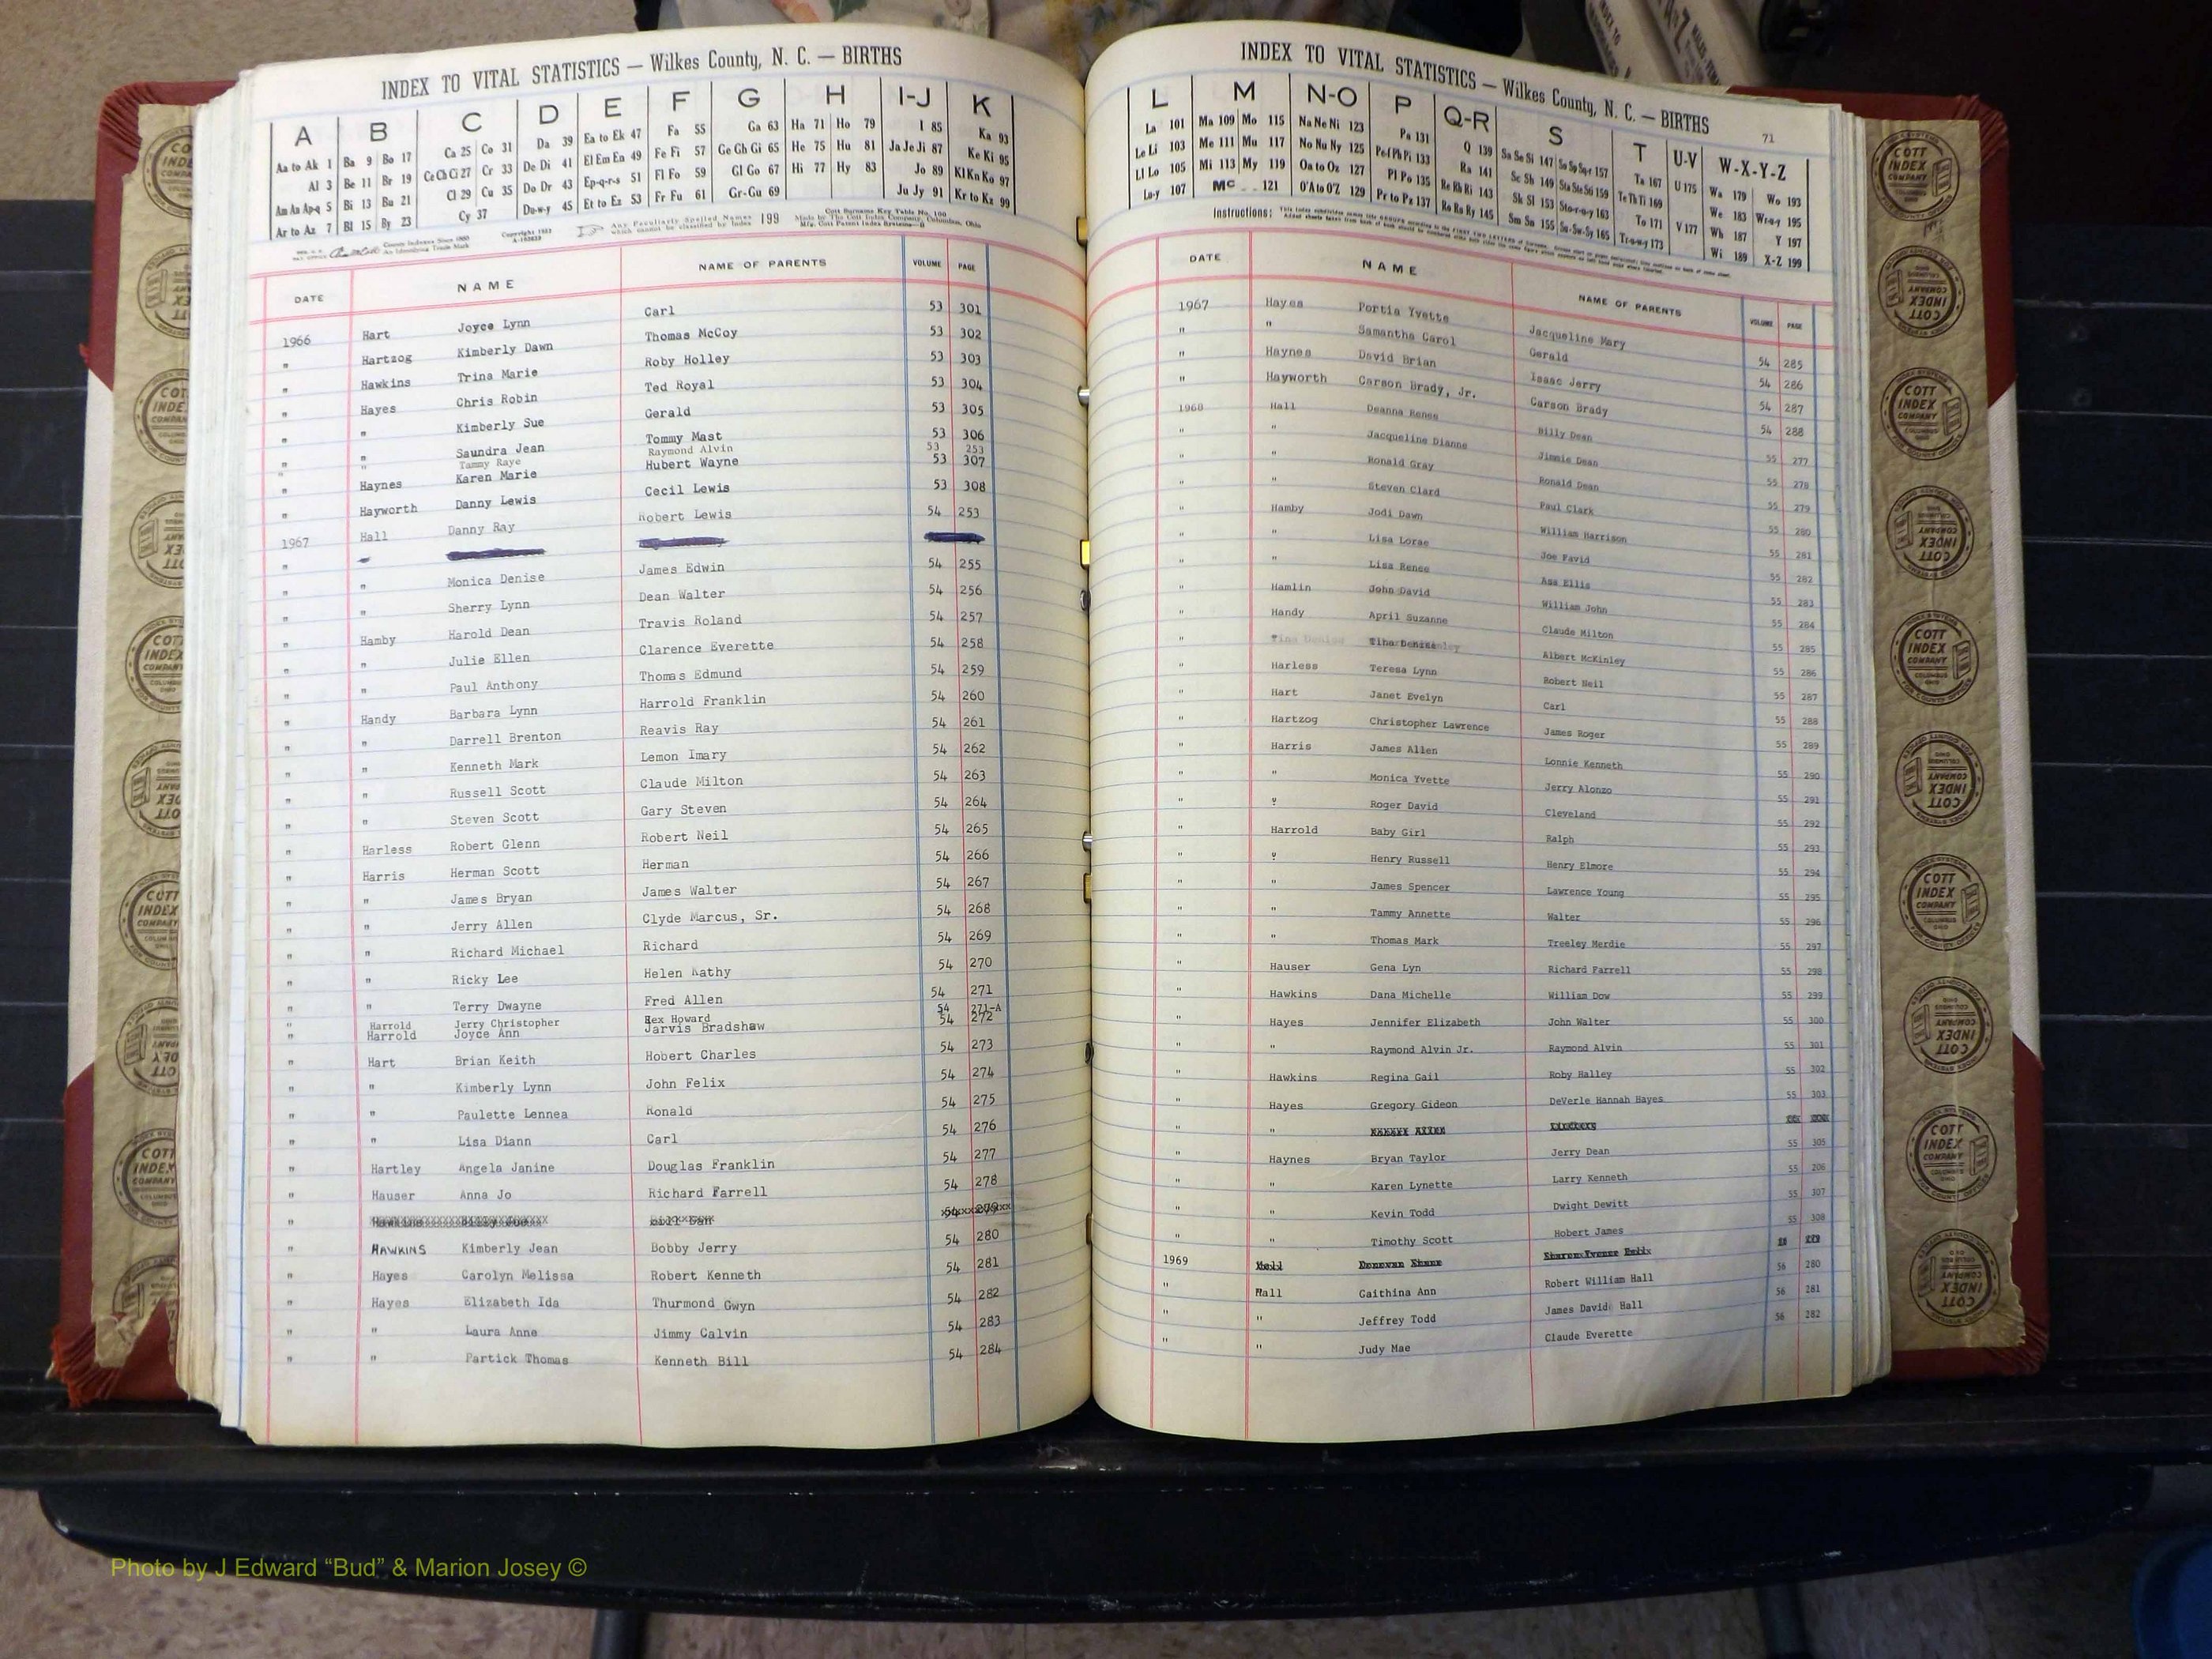 INDEX TO VITAL STATISTICS — Wilkes County, N. C. — BIRTHS
A B C D E F G H I-J K
Aa to Ak 1 Ba 9 Bo 17 Ca 25 Co 31 Da 39 Ea to Ek 47 Fa 55 Ga 63 Ha 71 Ho 79 I 85 Ka 93
Al 3 Be 11 Br 19 Ce Ch Ci 27 Cr 33 De Di 41 El Em En 49 Fe Fi 57 Ge Gh Gi 65 He 75 Hu 81 Ja Je Ji 87 Ke Ki 95
Am An Ap-q 5 Bi 13 Bu 21 Cl 29 Cu 35 Do Dr 43 Ep-q-r-s 51 Fl Fo 59 Gl Go 67 Hi 77 Hy 83 Jo 89 Kl Kn Ko 97
Ar to Az 7 Bl 15 By 23 Cy 37 Du-w-y 45 Et to Ez 53 Fr Fu 61 Gr-Gu 69 Ju Jy 91 Kr to Kz 99
Any Peculiarly Spelled Names which cannot be classified by Index 199
DATE NAME NAME OF PARENTS VOLUME PAGE
1966 Hart Joyce Lynn Carl 53 301
" Hartzog Kimberly Dawn Thomas McCoy 53 302
" Hawkins Trina Marie Roby Holley 53 303
" Hayes Chris Robin Ted Royal 53 304
" " Kimberly Sue Gerald 53 305
" " Saundra Jean Tommy Mast 53 306
" " Tammy Raye Raymond Alvin 53 253
" Haynes Karen Marie Hubert Wayne 53 307
" Hayworth Danny Lewis Cecil Lewis 53 308
1967 Hall Danny Ray Robert Lewis 54 253
"
" " Monica Denise James Edwin 54 255
" " Sherry Lynn Dean Walter 54 256
" Hamby Harold Dean Travis Roland 54 257
" " Julie Ellen Clarence Everette 54 258
" " Paul Anthony Thomas Edmund 54 259
" Handy Barbara Lynn Harrold Franklin 54 260
" " Darrell Brenton Reavis Ray 54 261
" " Kenneth Mark Lemon Imary 54 262
" " Russell Scott Claude Milton 54 263
" " Steven Scott Gary Steven 54 264
" Harless Robert Glenn Robert Neil 54 265
" Harris Herman Scott Herman 54 266
" " James Bryan James Walter 54 267
" " Jerry Allen Clyde Marcus, Sr. 54 268
" " Richard Michael Richard 54 269
" " Ricky Lee Helen Kathy 54 270
" " Terry Dwayne Fred Allen 54 271
" Harrold Jerry Christopher Rex Howard 54 271-A
" Harrold Joyce Ann Jarvis Bradshaw 54 272
" Hart Brian Keith Hobert Charles 54 273
" " Kimberly Lynn John Felix 54 274
" " Paulette Lennea Ronald 54 275
" " Lisa Diann Carl 54 276
" Hartley Angela Janine Douglas Franklin 54 277
" Hauser Anna Jo Richard Farrell 54 278
"
" HAWKINS Kimberly Jean Bobby Jerry 54 280
" Hayes Carolyn Melissa Robert Kenneth 54 281
" Hayes Elizabeth Ida Thurmond Gwyn 54 282
" " Laura Anne Jimmy Calvin 54 283
" " Partick Thomas Kenneth Bill 54 284
INDEX TO VITAL STATISTICS — Wilkes County, N. C. — BIRTHS
71
L M N-O P Q-R S T U-V W-X-Y-Z
La 101 Ma 109 Mo 115 Na Ne Ni 123 Pa 131 Q 139 Sa Se Si 147 Sp Sq-r 157 Ta 167 U 175 Wa 179 Wo 193
Le Li 103 Me 111 Mu 117 No Nu Ny 125 Pe-f Ph Pi 133 Ra 141 Sc Sh 149 Sta Ste Sti 159 Te Th Ti 169 V 177 We 183 Wr-u-y 195
Ll Lo 105 Mi 113 My 119 Oa to Oz 127 Pl Po 135 Re Rh Ri 143 Sk Sl 153 Sto-r-u-y 163 To 171 Wh 187 Y 197
Lu-y 107 Mc 121 O'A to O'Z 129 Pr to Pz 137 Ro Ru Ry 145 Sm Sn 155 Su-Sw-Sy 165 Tr-u-w-y 173 Wi 189 X-Z 199
Instructions:
DATE NAME NAME OF PARENTS VOLUME PAGE
1967 Hayes Portia Yvette Jacqueline Mary 54 285
" " Samantha Carol Gerald 54 286
" Haynes David Brian Isaac Jerry 54 287
" Hayworth Carson Brady, Jr. Carson Brady 54 288
1968 Hall Deanna Renee Billy Dean 55 277
" " Jacqueline Dianne Jimmie Dean 55 278
" " Ronald Gray Ronald Dean 55 279
" " Steven Clard Paul Clark 55 280
" Hamby Jodi Dawn William Harrison 55 281
" " Lisa Lorae Joe Favid 55 282
" " Lisa Renee Asa Ellis 55 283
" Hamlin John David William John 55 284
" Handy April Suzanne Claude Milton 55 285
" Albert McKinley 55 286
" Harless Teresa Lynn Robert Neil 55 287
" Hart Janet Evelyn Carl 55 288
" Hartzog Christopher Lawrence James Roger 55 289
" Harris James Allen Lonnie Kenneth 55 290
" " Monica Yvette Jerry Alonzo 55 291
" " Roger David Cleveland 55 292
" Harrold Baby Girl Ralph 55 293
" " Henry Russell Henry Elmore 55 294
" " James Spencer Lawrence Young 55 295
" " Tammy Annette Walter 55 296
" " Thomas Mark Treeley Merdie 55 297
" Hauser Gena Lyn Richard Farrell 55 298
" Hawkins Dana Michelle William Dow 55 299
" Hayes Jennifer Elizabeth John Walter 55 300
" " Raymond Alvin Jr. Raymond Alvin 55 301
" Hawkins Regina Gail Roby Halley 55 302
" Hayes Gregory Gideon DeVerle Hannah Hayes 55 303
" "
" Haynes Bryan Taylor Jerry Dean 55 305
" " Karen Lynette Larry Kenneth 55 206
" " Kevin Todd Dwight Dewitt 55 307
" " Timothy Scott Hobert James 55 308
1969
" Hall Gaithina Ann Robert William Hall 56 280
" " Jeffrey Todd James David Hall 56 281
" " Judy Mae Claude Everette 56 282
COTT INDEX COMPANY
Photo by J Edward “Bud” & Marion Josey ©